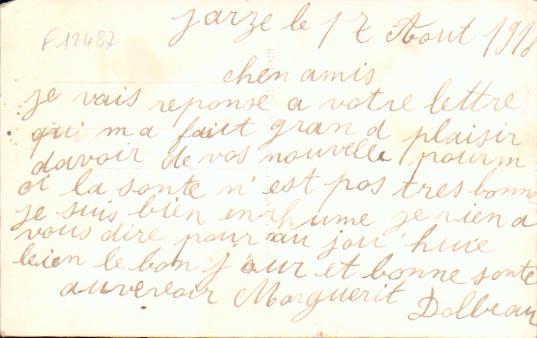 F 12487
jarze le 17 Aout 1918
chen amis
je vais reponse a votre lettre
qui ma fait grand plaisir
davoir de vos nouvelle pourm
oi la sonte n'est pas tres bonne
je suis bien enrhume je rien a
vous dire pour au jou'huie
bien le bon j'our et bonne sonte
auveroair Marguerit Dolbeau